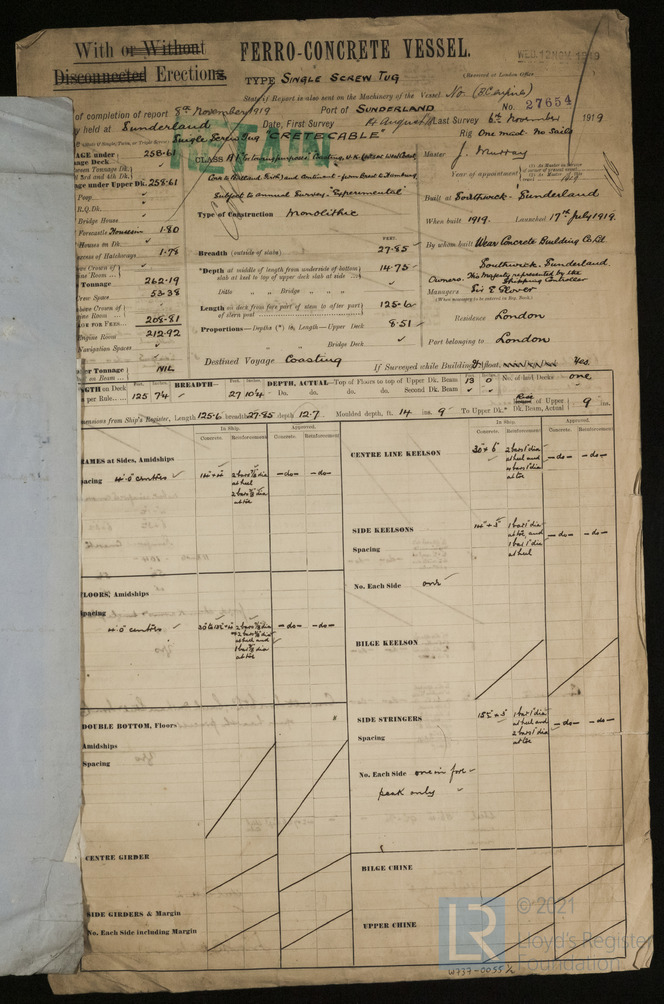 With or Without
Disconnected Erections
FERRO-CONCRETE VESSEL.
WED. 12 NOV. 1919
TYPE Single Screw Tug
(Received at London Office
State if Report is also sent on the Machinery of the Vessel No.
of completion of report 8th November 1919 Port of Sunderland No. 27654
held at Sunderland Date, First Survey August Last Survey 6th November 1919
Single Screw Tug "CRETECABLE" Rig One mast No Sails
RETAIN
258.61
CLASS A1 "for towing purposes" Coasting U.K.
Master J. Murray
Continent
Year of appointment
Upper Dk. 258.61
Subject to annual Survey - "Experimental"
Poop
R.Q.Dk.
Bridge House
Forecastle 1.80
Houses on Dk.
Excess of Hatchways 1.78
Type of Construction Monolithic
Built at Southwick - Sunderland
When built 1919. Launched 17th July 1919.
By whom built Wear Concrete Building Co. Ld.
Southwick - Sunderland
FEET.
Breadth (outside of slab) 27.85
*Depth at middle of length from underside of bottom slab at keel to top of upper deck slab at side 14.75
Ditto " " Bridge " "
Owners His Majesty represented by the Shipping Controller
Tonnage 262.19
Crew Space 53.38
Managers Sir E Glover
(When managers to be entered in Reg. Book.)
208.81
212.92
Length on deck from fore part of stem to after part of stern post 125.6
Residence London
Proportions—Depths (*) in Length—Upper Deck 8.51
Bridge Deck
Port belonging to London
Navigation Spaces
Tonnage NIL
Destined Voyage Coasting
If Surveyed while Building, Afloat, Yes.
LENGTH on Deck per Rule 125 7¼ BREADTH— 27 10¼ DEPTH, ACTUAL—Top of Floors to top of Upper Dk. Beam 13 0 No. of laid Decks one
Do. do. do. Second Dk. Beam
Dimensions from Ship's Register, Length 125.6 breadth 27.85 depth 12.7 Moulded depth, ft. 14 ins. 9 To Upper Dk. Rise of Upper Dk. Beam, Actual 9 ins
In Ship. Approved.
Concrete. Reinforcement. Concrete. Reinforcement.
FRAMES at Sides, Amidships
Spacing 4'.0" centres
2 bars ⅞ dia at heel
2 bars ⅞ dia at toe
-do- -do-
FLOORS, Amidships
Spacing
4'.0" centres
-do- -do-
DOUBLE BOTTOM, Floors,
Amidships
Spacing
CENTRE GIRDER
SIDE GIRDERS & Margin
No. Each Side including Margin
In Ship. Approved.
Concrete. Reinforcement. Concrete. Reinforcement.
CENTRE LINE KEELSON
30" × 6"
2 bars 1" dia at heel and
at toe
-do- -do-
SIDE KEELSONS
Spacing
1 bar 1" dia at toe, and
1 bar 1" dia at heel
-do- -do-
No. Each Side one
BILGE KEELSON
SIDE STRINGERS
Spacing
1 bar 1" dia at heel and
2 bars 1" dia at toe
-do- -do-
No. Each Side one in fore-
peak only
BILGE CHINE
UPPER CHINE
LR
© 2021
Lloyd's Register
Foundation
W737-0055